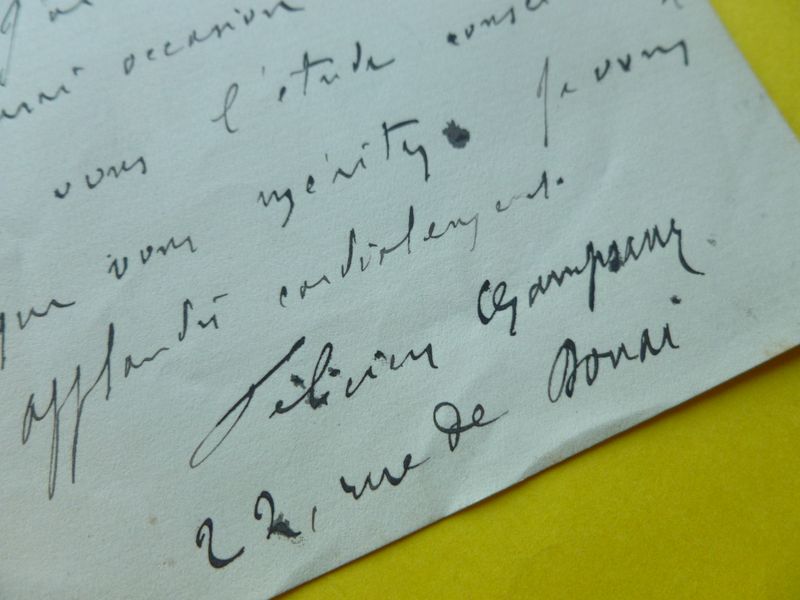 occasion
vous l'étude
que vous méritez. Je vous
applaudis cordialement.
Félicien Champsaur
22, rue de Douai